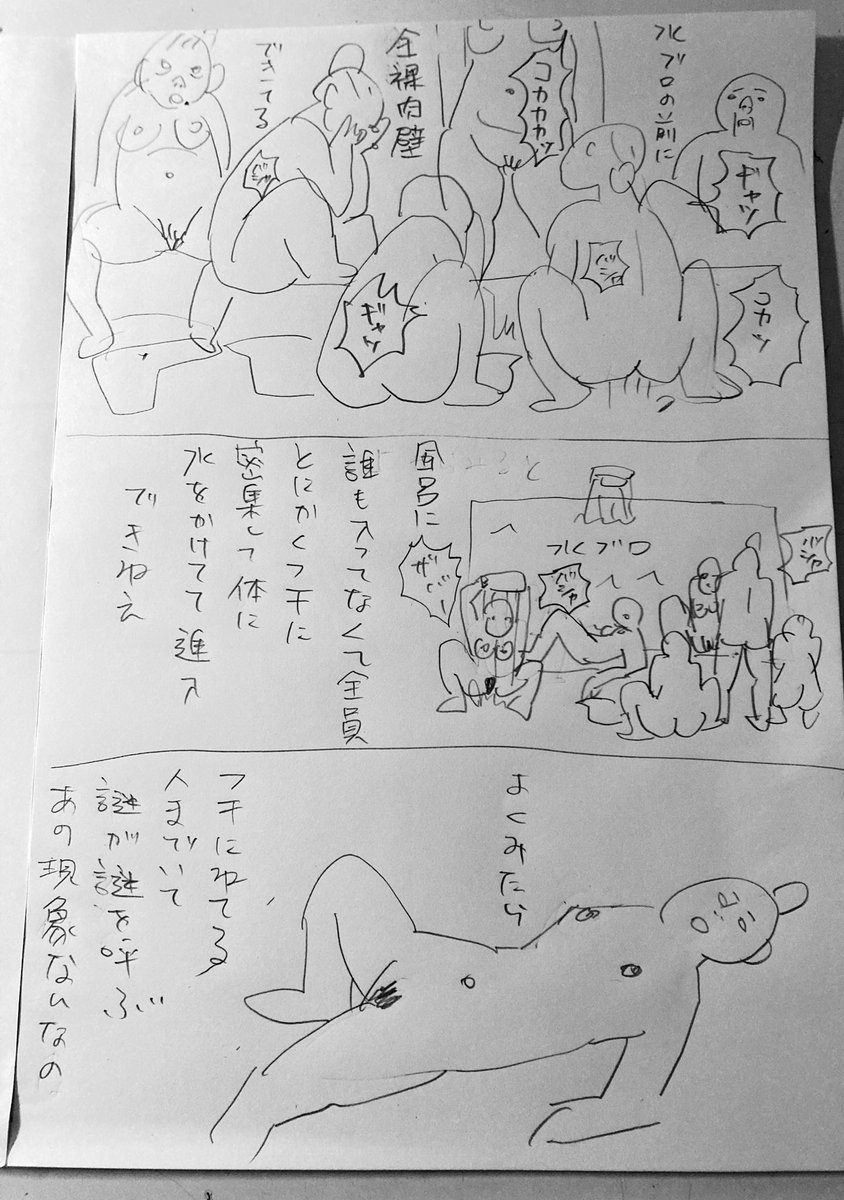 水ブロの前に
ギャッ
コカッ
コカカカッ
バシャ
全裸肉壁
できてる
ギャッ
水ブロ
バシャ
バシャ
ザバー
風呂に
誰も入ってなくて全員
とにかくフチに
密集して体に
水をかけてて進入
できねえ
よくみたら
フチにねてる
人までいて
謎が謎を呼ぶ
あの現象なんなの